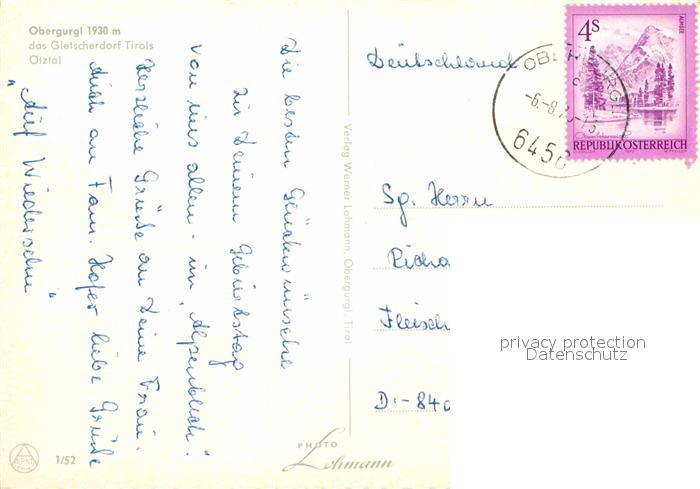 Obergurgl 1930 m
das Gletscherdorf Tirols
Ötztal
Die besten Glückwünsche
zu Deinem Geburtstag
von uns allen - im "Alpenblick".
Herzliche Grüße an Deine Frau.
Auch an Fam. Hofer liebe Grüße
"Auf Wiedersehn"
1/52
Verlag Werner Lohmann, Obergurgl, Tirol
PHOTO
Lohmann
Deutschland
OBERGURGL
-6.-8.
6456
4S
ALMSEE
REPUBLIK ÖSTERREICH
Sg. Herrn
Richa
Fleisch
D.-840
privacy protection
Datenschutz